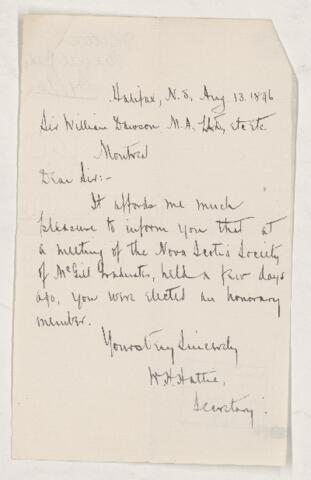 Halifax, N.S. Aug. 13. 1896
Sir William Dawson M.A. LL.D., etc etc
Montreal
Dear Sir:-
It affords me much
pleasure to inform you that at
a meeting of the Nova Scotia Society
of McGill Graduates, held a few days
ago, you were elected an honorary
member.
Yours very Sincerely
W. H. Hattie,
Secretary.